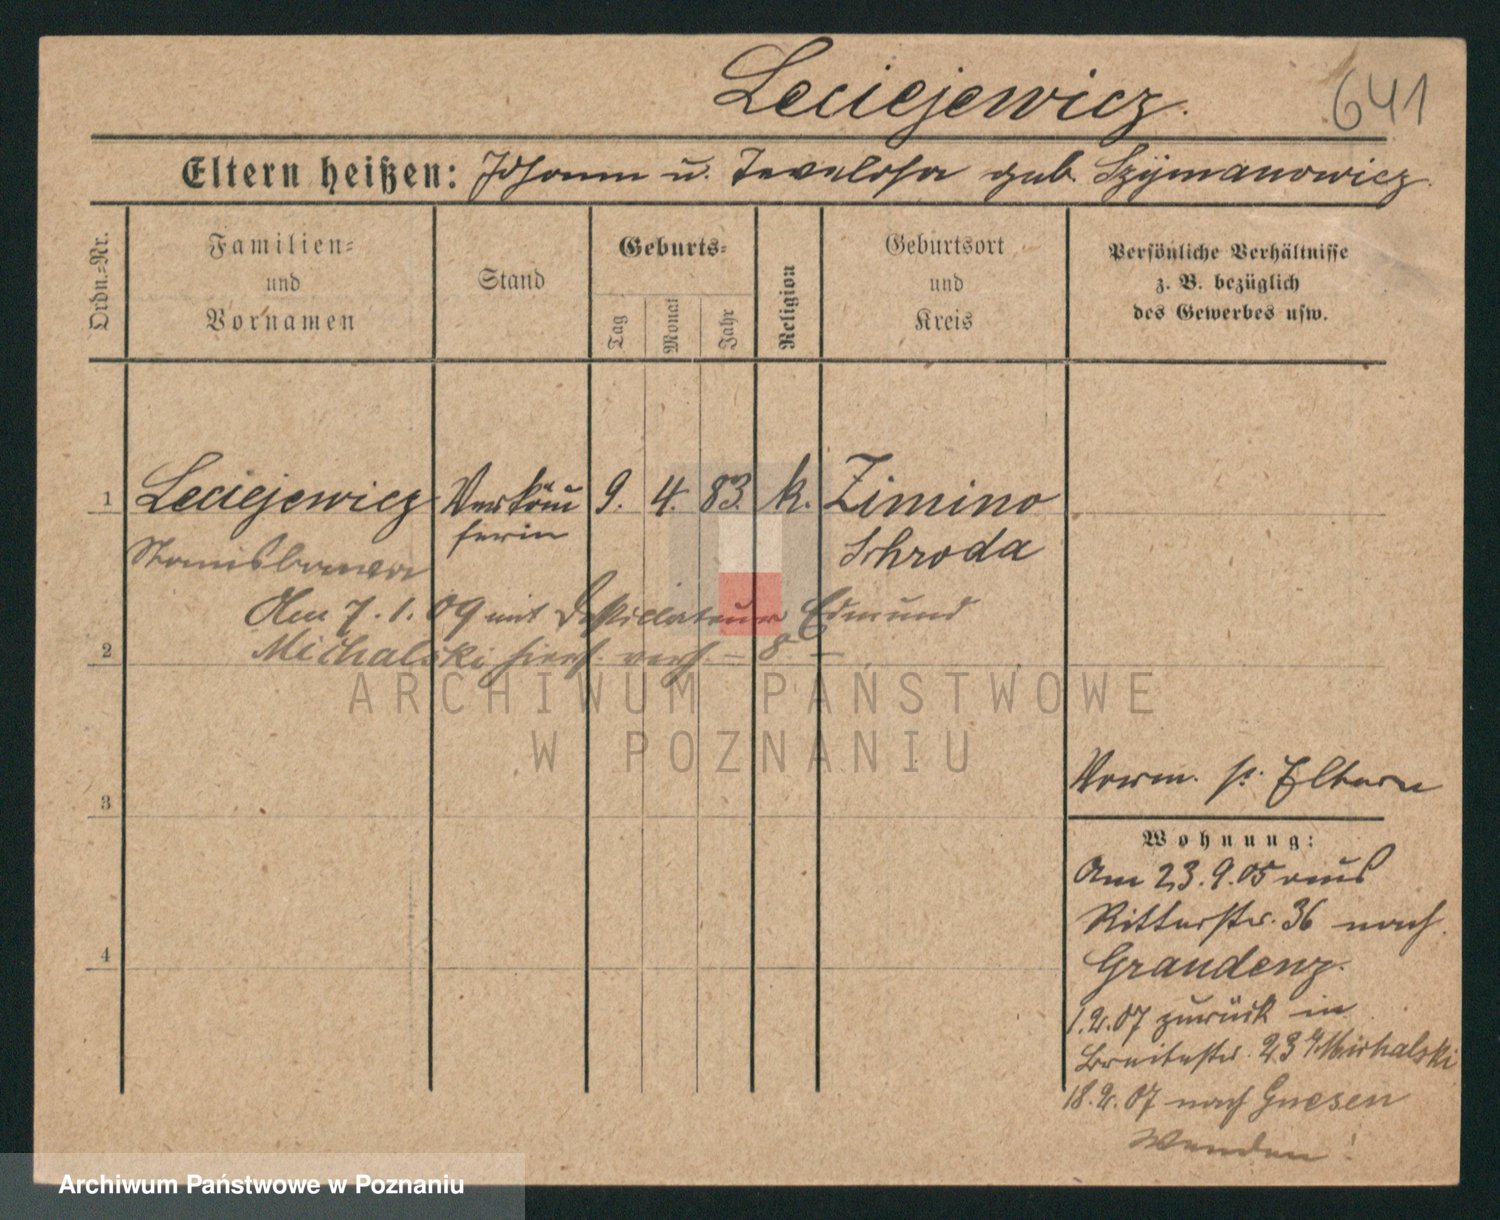 Leciejewicz.
641
Eltern heißen: Johann u. geb. Szÿmanowicz.
Ordn.=Nr.
Familien=
und
Vornamen
Stand
Geburts=
Tag
Monat
Jahr
Religion
Geburtsort
und
Kreis
Persönliche Verhältnisse
z. B. bezüglich
des Gewerbes usw.
1
Leciejewicz
Verkäu
9. 4. 83. k. Zimino
ferin
Schroda
Stanislawa
Am 7.1.09 mit Destillateur Edmund
2
Michalski hiers. verh. – 8. –
ARCHIWUM PAŃSTWOWE
W POZNANIU
3
Vorm. s. Eltern
Wohnung:
Am 23.9.05 aus
Ritterstr. 36 nach
4
Graudenz.
1.2.07 zurück in
Breitestr. 23 Michalski
18.2.07 nach Gnesen
Wenden!
Archiwum Państwowe w Poznaniu